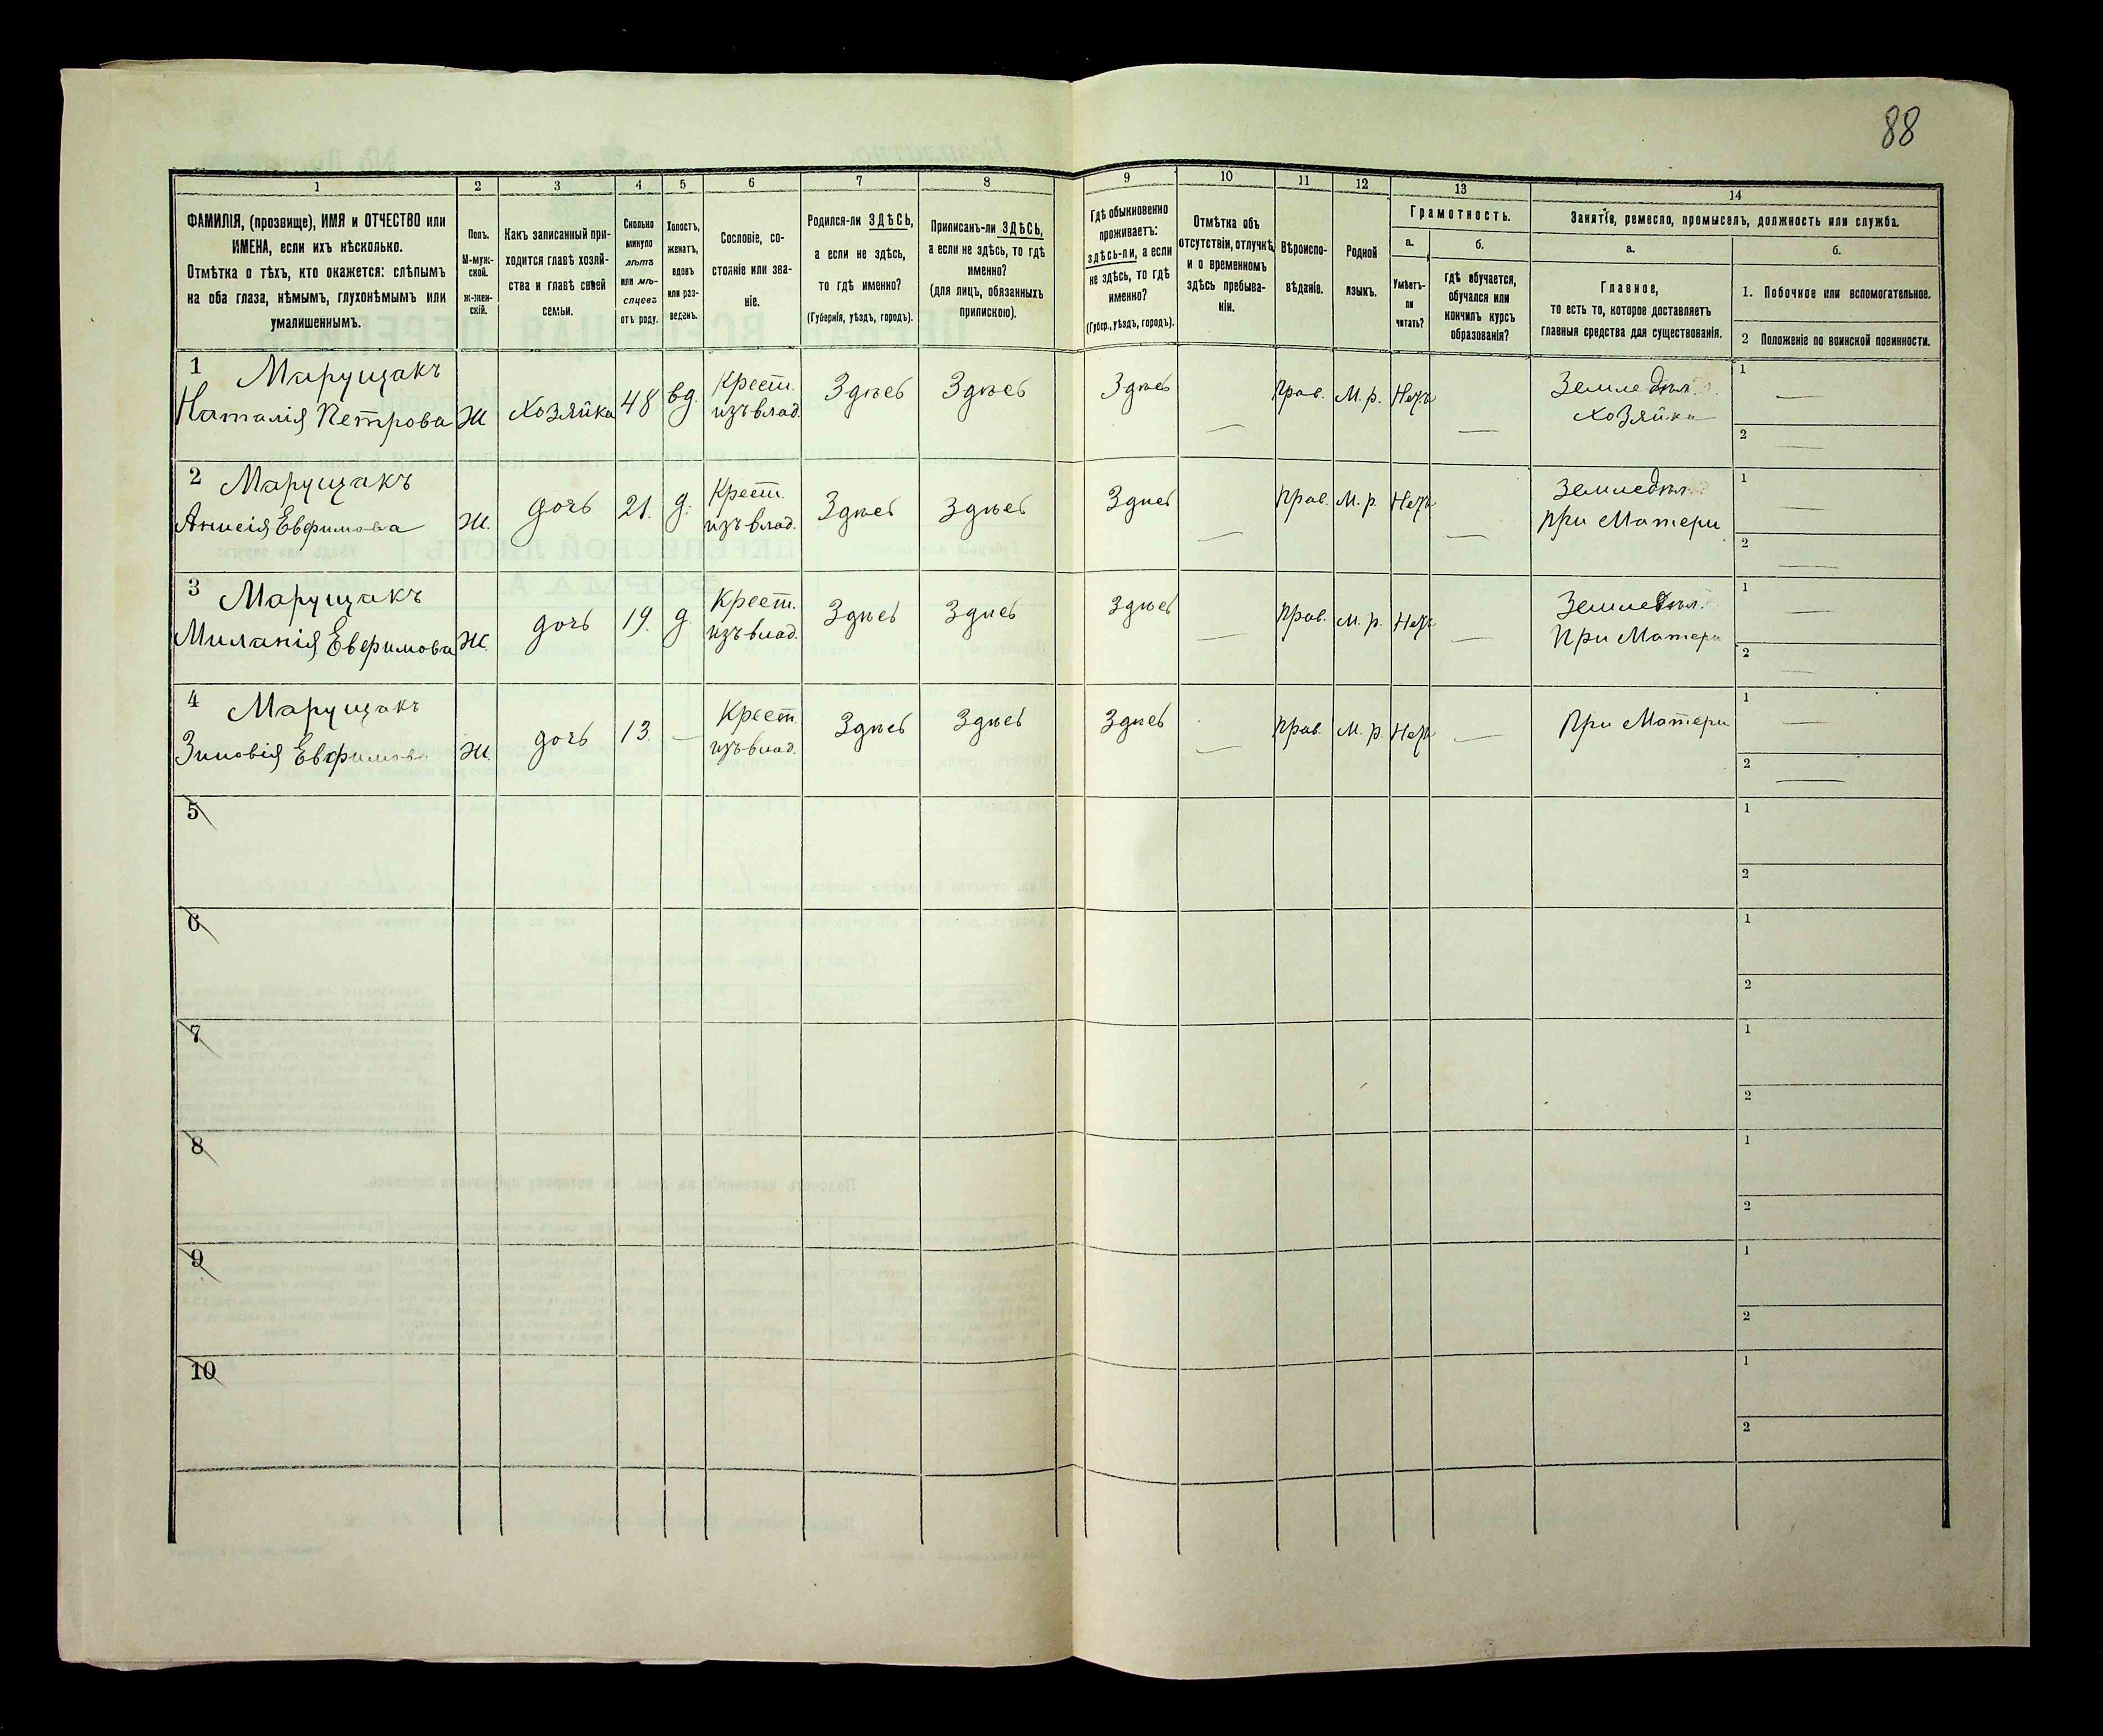 88
1
2
3
4
5
6
7
8
9
10
11
12
13
14
ФАМИЛІЯ, (прозвище), ИМЯ и ОТЧЕСТВО или
ИМЕНА, если ихъ нѣсколько.
Отмѣтка о тѣхъ, кто окажется: слѣпымъ
на оба глаза, нѣмымъ, глухонѣмымъ или
умалишеннымъ.
Полъ.
М-муж-
ской.
ж-жен-
скій.
Какъ записанный при-
ходится главѣ хозяй-
ства и главѣ своей
семьи.
Сколько
минуло
лѣтъ
или мѣ-
сяцевъ
отъ роду.
Холостъ,
женатъ,
вдовъ
или раз-
веденъ.
Сословіе, со-
стояніе или зва-
ніе.
Родился-ли ЗДѢСЬ,
а если не здѣсь,
то гдѣ именно?
(Губернія, уѣздъ, городъ).
Приписанъ-ли ЗДѢСЬ,
а если не здѣсь, то гдѣ
именно?
(для лицъ, обязанныхъ
припискою).
Гдѣ обыкновенно
проживаетъ:
здѣсь-ли, а если
не здѣсь, то гдѣ
именно?
(Губер., уѣздъ, городъ).
Отмѣтка объ
отсутствіи, отлучкѣ
и о временномъ
здѣсь пребыва-
ніи.
Вѣроиспо-
вѣданіе.
Родной
языкъ.
Грамотность.
а.
Умѣетъ-
ли
читать?
б.
Гдѣ обучается,
обучался или
кончилъ курсъ
образованія?
Занятіе, ремесло, промыселъ, должность или служба.
а.
Главное,
то есть то, которое доставляетъ
главныя средства для существованія.
б.
1. Побочное или вспомогательное.
2 Положеніе по воинской повинности.
1 Марущакъ
Наталія Петрова
Ж
Хозяйка
48
вд.
Крест.
изъ влад.
Здѣсь
Здѣсь
Здѣсь
—
Прав.
М. р.
Нетъ
—
Земледѣл.
Хозяйка
1 —
2 —
2 Марущакъ
Евфимова
Ж.
дочь
21.
д.
Крест.
изъ влад.
Здѣсь
Здѣсь
Здѣсь
—
Прав.
М. р.
Нетъ
—
Земледѣл.
при Матери
1 —
2 —
3 Марущакъ
Миланія Евфимова
Ж.
дочь
19.
д
Крест.
изъ влад.
Здѣсь
Здѣсь
Здѣсь
—
Прав.
М. р.
Нетъ
—
Земледѣл.
При Матери
1 —
2 —
4 Марущакъ
Зиновія Евфимова
Ж.
дочь
13
—
Крест.
изъ влад.
Здѣсь
Здѣсь
Здѣсь
—
Прав.
М. р.
Нетъ
—
При Матери
1 —
2 —
5
1
2
6
1
2
7
1
2
8
1
2
9
1
2
10
1
2